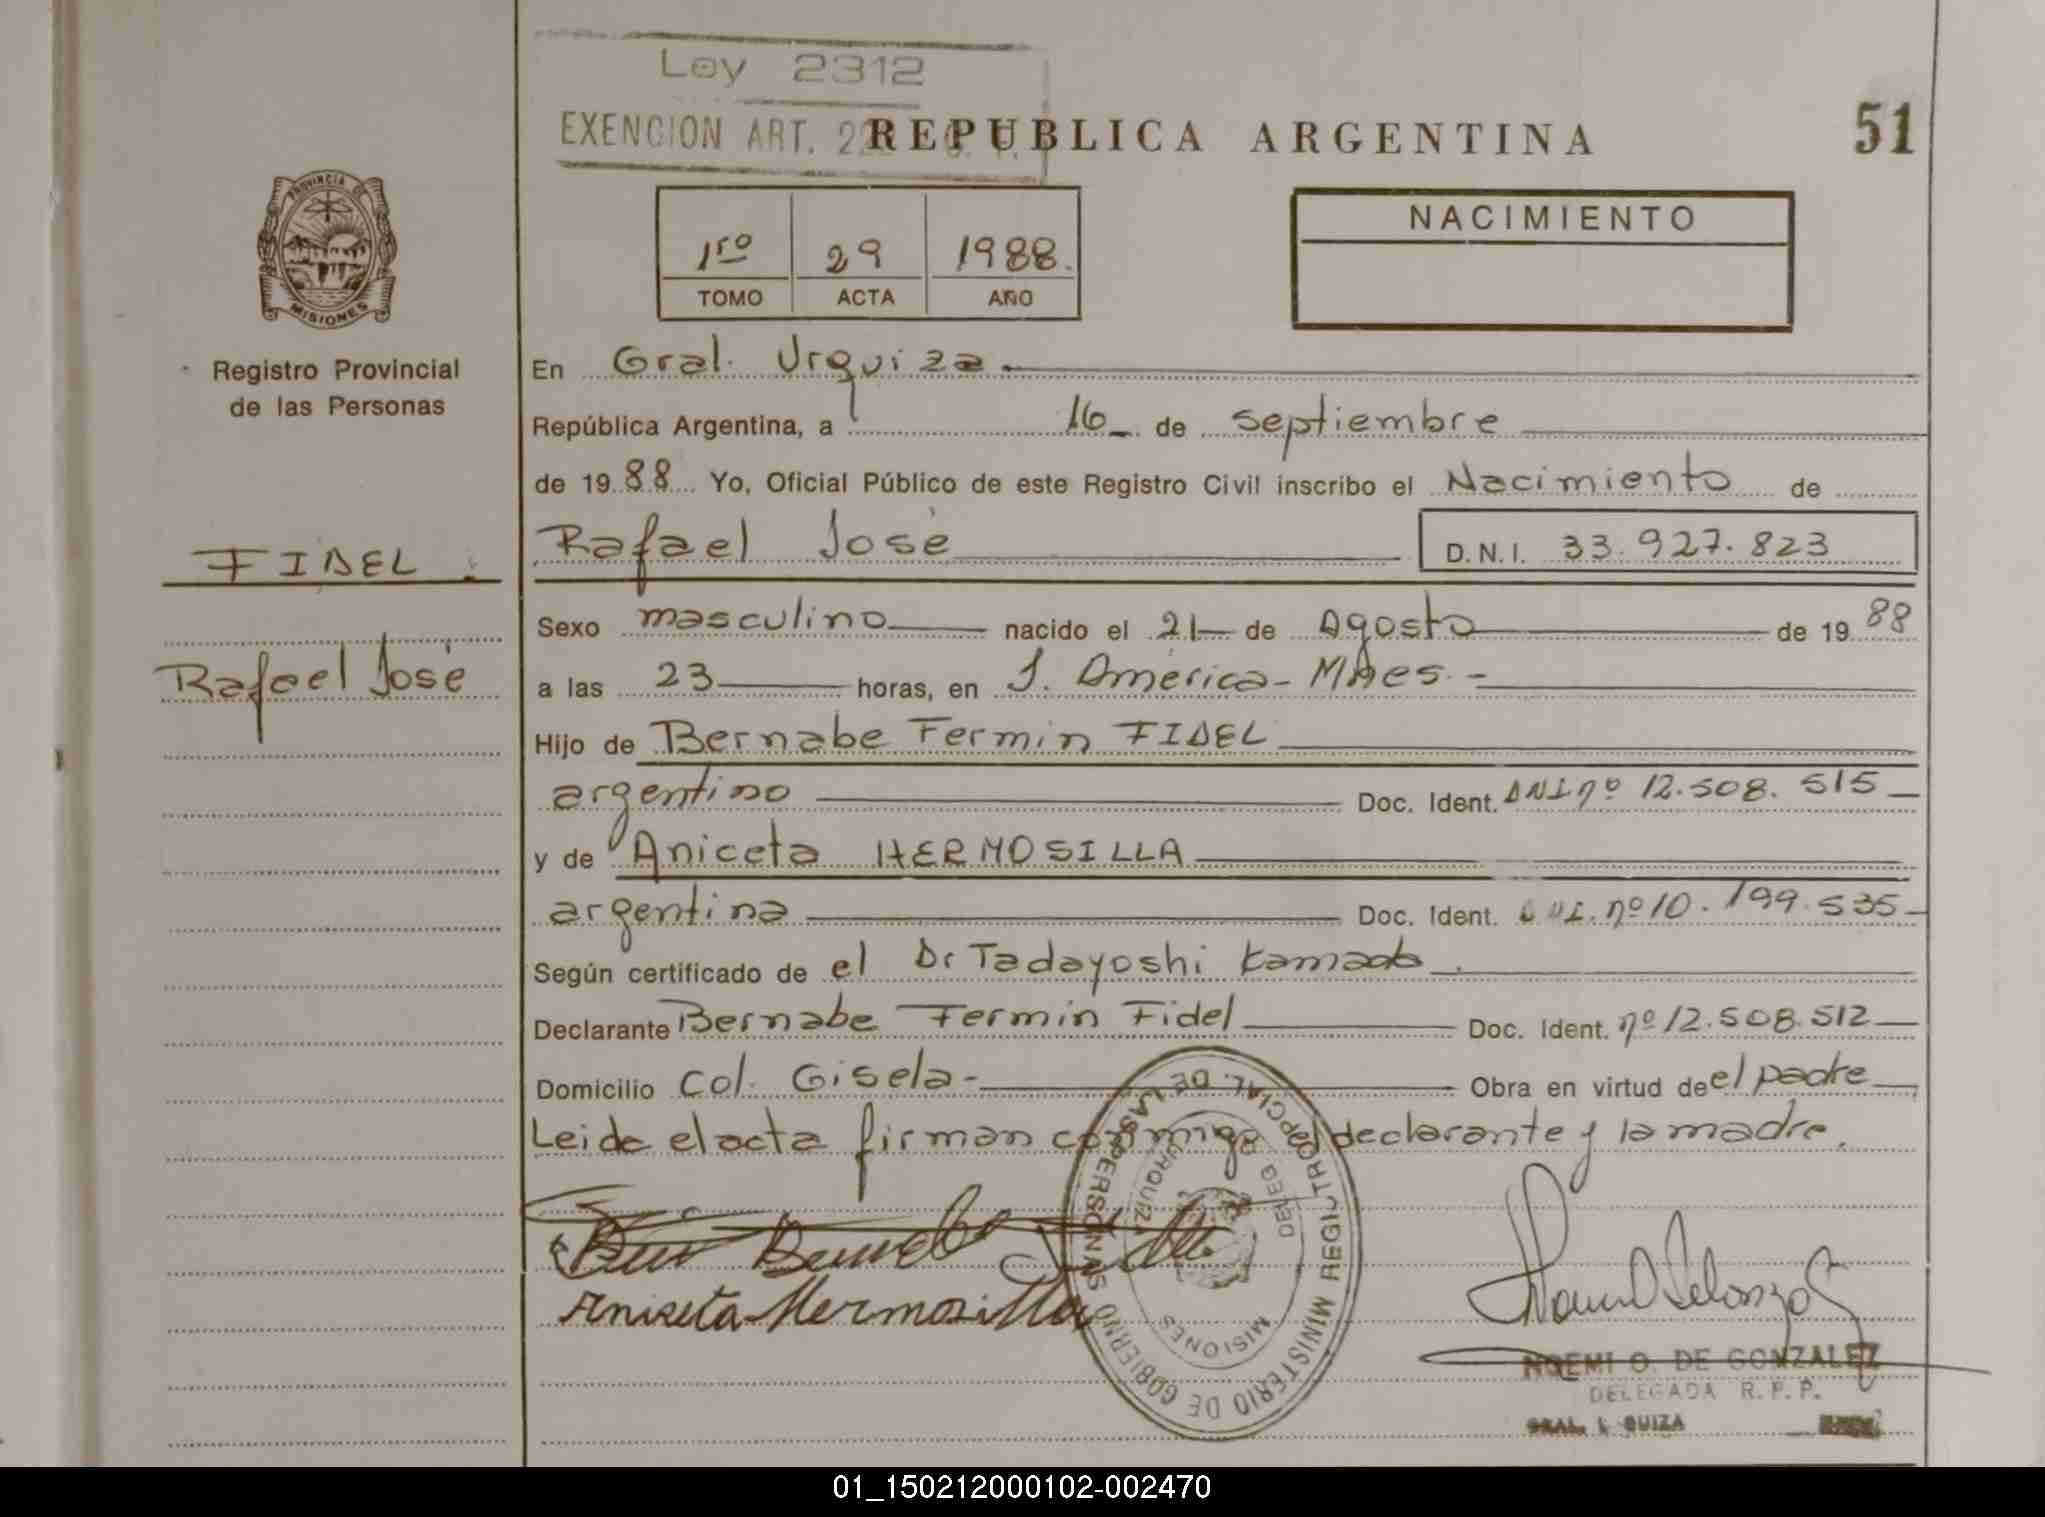 Ley 2312
EXENCION ART. 22
REPUBLICA ARGENTINA
51
PROVINCIA DE
MISIONES
Registro Provincial
de las Personas
1ro 29 1988.
TOMO ACTA AÑO
NACIMIENTO
En Gral. Urquiza
República Argentina, a 16 de septiembre
de 1988 Yo, Oficial Público de este Registro Civil inscribo el Nacimiento de
FIDEL
Rafael José
Rafael José D.N.I. 33.927.823
Sexo masculino nacido el 21 de Agosto de 1988
a las 23 horas, en J. América - Mnes. -
Hijo de Bernabe Fermin FIDEL
argentino Doc. Ident. DNI nº 12.508.515
y de Aniceta HERMOSILLA
argentina Doc. Ident. DNI. nº 10.199.535
Según certificado de el Dr Tadayoshi Kamada.
Declarante Bernabe Fermin Fidel Doc. Ident. nº 12.508.512
Domicilio Col. Gisela - Obra en virtud de el padre
Leida el acta firman conmigo el declarante y la madre.
Aniseta Hermosilla
MINISTERIO DE GOBIERNO REGISTRO PCIAL. DE LAS PERSONAS
DELEG
URQUIZA
MISIONES
NOEMI O. DE GONZALEZ
DELEGADA R. P. P.
GRAL. QUIZA
01_150212000102-002470